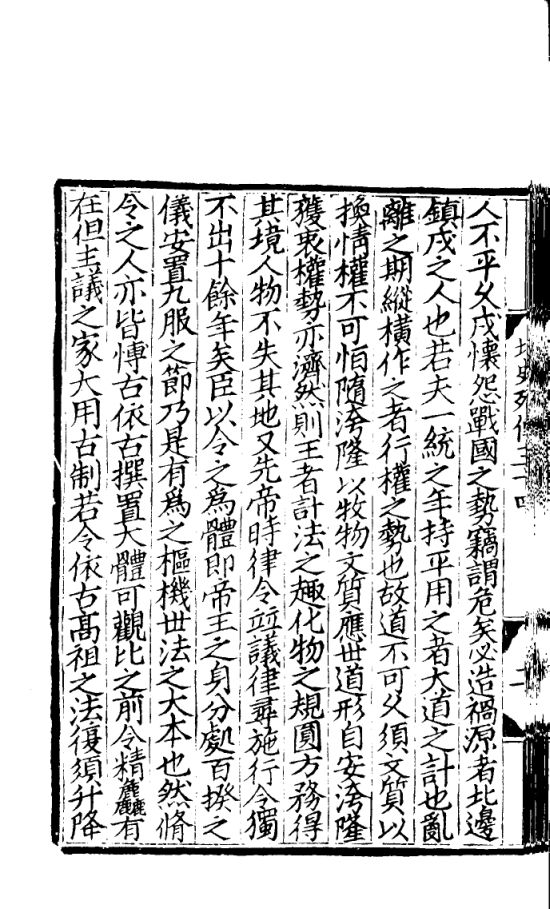 人不平乆戍懷怨戰國之勢竊謂危矣必造禍源者北邊
鎮戍之人也若夫一統之年持平用之者大道之計也亂
離之期縱橫作之者行權之勢也故道不可乆須文質以
換情權不可怕隨洿隆以牧物文質應世道形自安洿隆
獲衷權勢亦濟然則王者計法之趣化物之規圓方務得
其境人物不失其地又先帝時律令竝議律尋施行令獨
不出十餘年矣臣以令之爲體即帝王之身分處百揆之
儀安置九服之節乃是有爲之樞機世法之大本也然脩
令之人亦皆愽古依古撰置大體可觀比之前令精麤有
在但主議之家大用古制若令依古髙祖之法復須升降